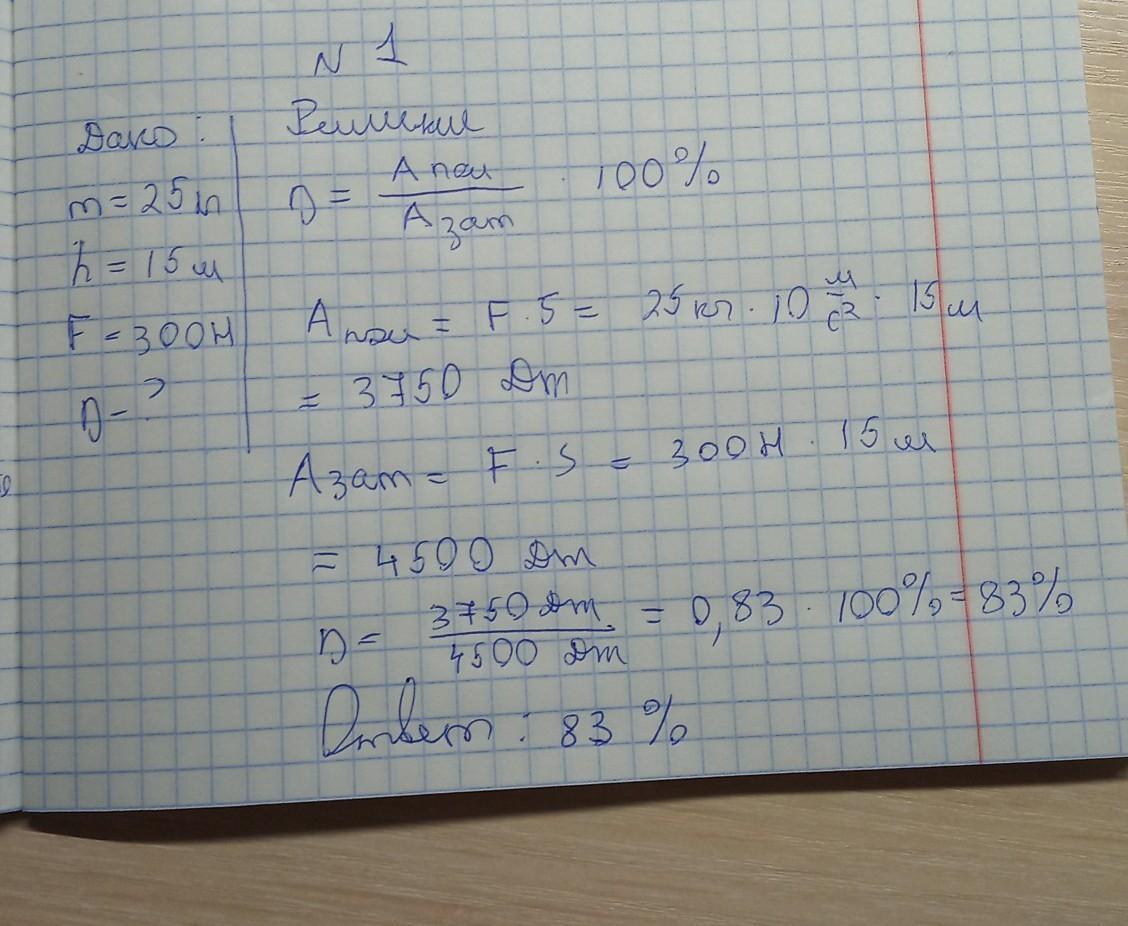 N 1
Дано:
m = 25 кг
h = 15 м
F = 300 Н
η - ?
Решение
η = A пол / A зат · 100%
A пол = F · S = 25 кг · 10 м/с² · 15 м
= 3750 Дж
A зат = F · S = 300 Н · 15 м
= 4500 Дж
η = 3750 Дж / 4500 Дж = 0,83 · 100% = 83%
Ответ: 83 %